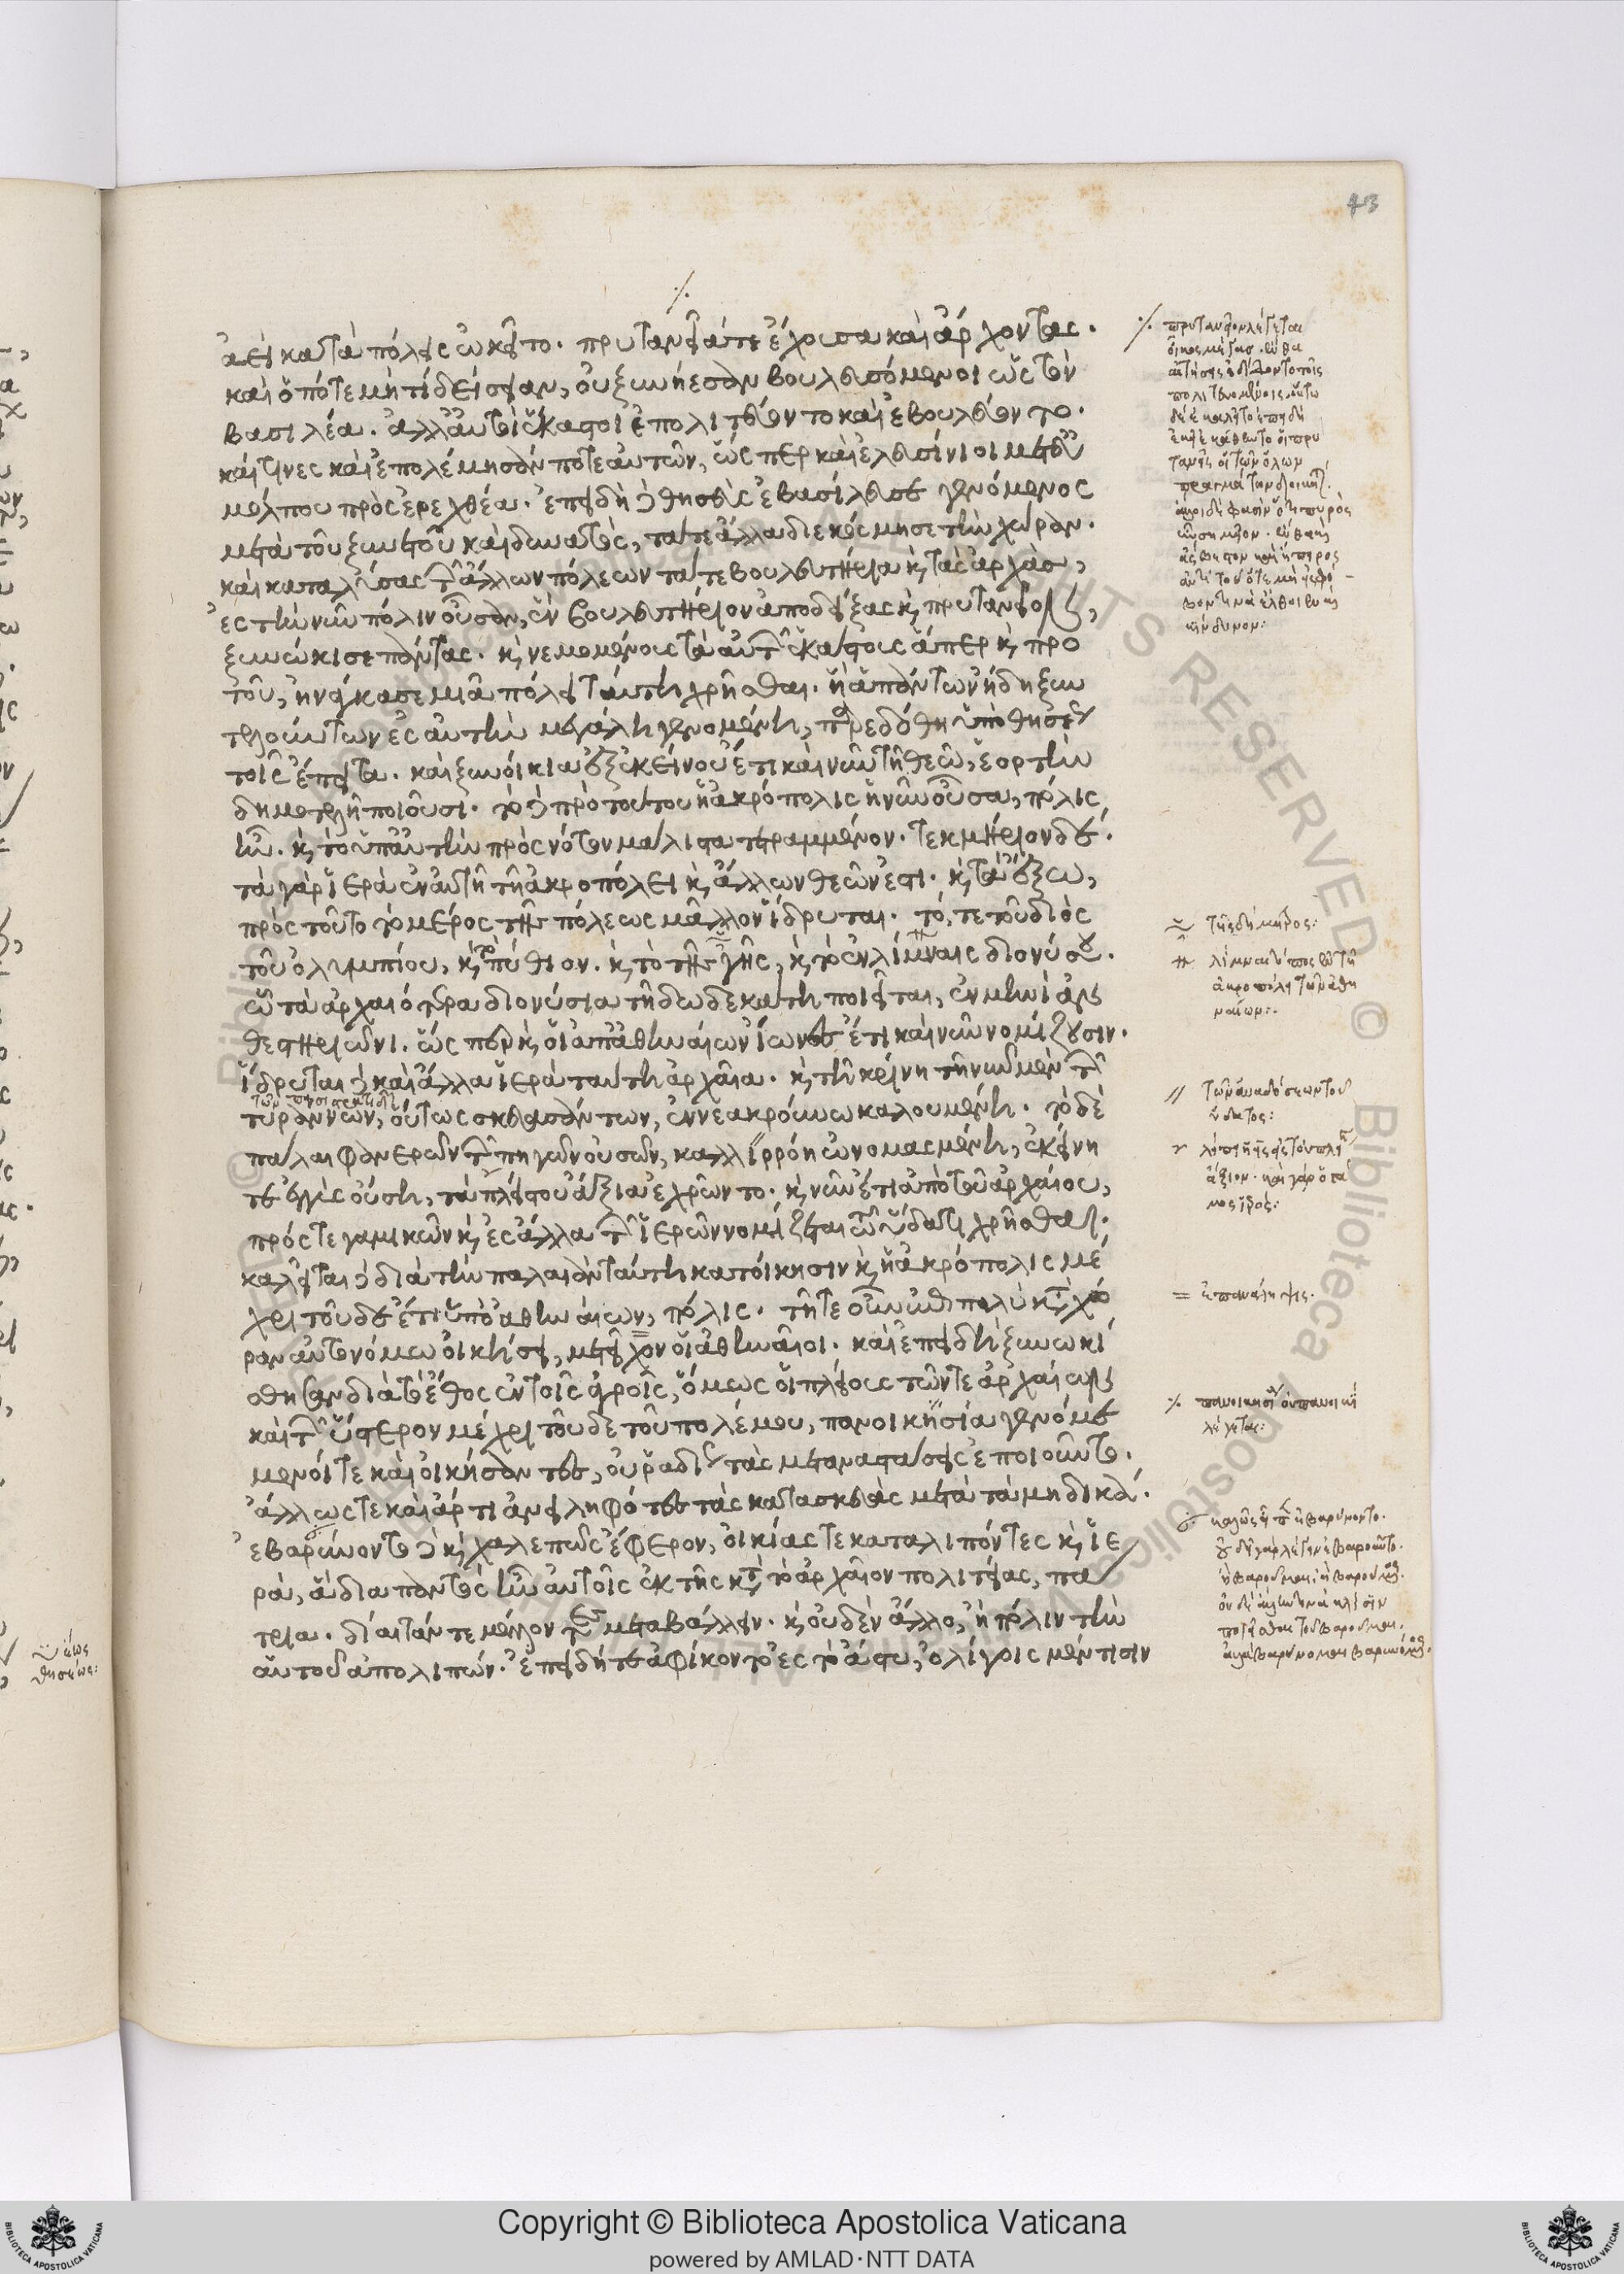 43
ἀεὶ κατὰ πόλεις ὠκεῖτο. πρυτανεῖά τε ἔχουσα καὶ ἄρχοντας.
καὶ ὁπότε μή τι δείσειαν, οὐ ξυνῄεσαν βουλευσόμενοι ὡς τὸν
βασιλέα. ἀλλ' αὐτοὶ ἕκαστοι ἐπολιτεύοντο καὶ ἐβουλεύοντο.
καί τινες καὶ ἐπολέμησάν ποτε αὐτῶν, ὥςπερ καὶ ἐλευσίνιοι μετ' εὐ
μόλπου πρὸς ἐρεχθέα. ἐπειδὴ δὲ θησεὺς ἐβασίλευσε γενόμενος
μετὰ τοῦ ξυνετοῦ καὶ δυνατὸς, τά τε ἄλλα διεκόσμησε τὴν χώραν.
καὶ καταλύσας τῶν ἄλλων πόλεων τά τε βουλευτήρια καὶ τὰς ἀρχὰς,
ἐς τὴν νῦν πόλιν οὖσαν, ἓν βουλευτήριον ἀποδείξας καὶ πρυτανεῖον,
ξυνῴκισε πάντας. καὶ νεμομένους τὰ αὑτῶν ἑκάστους ἅπερ καὶ πρὸ
τοῦ, ἠνάγκασε μιᾷ πόλει ταύτῃ χρῆσθαι. ἣ ἁπάντων ἤδη ξυν
τελούντων ἐς αὐτὴν μεγάλη γενομένη, παρεδόθη ὑπὸ θησέως
τοῖς ἔπειτα. καὶ ξυνοίκια ἐξ ἐκείνου ἔτι καὶ νῦν τῇ θεῷ, ἑορτὴν
δημοτελῆ ποιοῦσι. τὸ δὲ πρὸ τούτου ἡ ἀκρόπολις ἡ νῦν οὖσα, πόλις
ἦν. καὶ τὸ ὑπ' αὐτὴν πρὸς νότον μάλιστα τετραμμένον. τεκμήριον δέ.
τὰ γὰρ ἱερὰ ἐν αὐτῇ τῇ ἀκροπόλει καὶ ἄλλων θεῶν ἐστι. καὶ τὰ ἔξω,
πρὸς τοῦτο τὸ μέρος τῆς πόλεως μᾶλλον ἵδρυται. τό, τε τοῦ διὸς
τοῦ ὀλυμπίου, καὶ τὸ πύθιον. καὶ τὸ τῆς γῆς, καὶ τὸ ἐν λίμναις διονύσου.
ᾧ τὰ ἀρχαιότερα διονύσια τῇ δωδεκάτῃ ποιεῖται, ἐν μηνὶ ἀν
θεστηριῶνι. ὥςπερ καὶ οἱ ἀπ' ἀθηναίων ἴωνες ἔτι καὶ νῦν νομίζουσιν.
ἵδρυται δὲ καὶ ἄλλα ἱερὰ ταύτῃ ἀρχαῖα. καὶ τῇ κρήνῃ τῇ νῦν μὲν τῶν
τῶν πεισιστρατιδῶν
τυράννων, οὕτως σκευασάντων, ἐννεακρούνῳ καλουμένῃ. τὸ δὲ
πάλαι φανερῶν τῶν πηγῶν οὐσῶν, καλλιρρόη ὠνομασμένη, ἐκείνη
τε ἐγγὺς οὔσῃ, τὰ πλείστου ἄξια ἐχρῶντο. καὶ νῦν ἔτι ἀπὸ τοῦ ἀρχαίου,
πρός τε γαμικῶν καὶ ἐς ἄλλα τῶν ἱερῶν νομίζεται τῷ ὕδατι χρῆσθαι.
καλεῖται δὲ διὰ τὴν παλαιὰν ταύτῃ κατοίκησιν καὶ ἡ ἀκρόπολις μέ
χρι τοῦδε ἔτι ὑπὸ ἀθηναίων, πόλις. τῇ τε οὖν ἐπὶ πολὺ κατὰ χώ
ραν αὐτονόμῳ οἰκήσει, μετεῖχον οἱ ἀθηναῖοι. καὶ ἐπειδὴ ξυνῳκί
σθησαν διὰ τὸ ἔθος ἐν τοῖς ἀγροῖς, ὅμως οἱ πλείους τῶν τε ἀρχαίων
καὶ τῶν ὕστερον μέχρι τοῦδε τοῦ πολέμου, πανοικησίᾳ γενόμε
μενοί τε καὶ οἰκήσαντες, οὐ ῥαδίως τὰς μεταναστάσεις ἐποιοῦντο.
ἄλλως τε καὶ ἄρτι ἀνειληφότες τὰς κατασκευὰς μετὰ τὰ μηδικά.
ἐβαρύνοντο δὲ καὶ χαλεπῶς ἔφερον, οἰκίας τε καταλιπόντες καὶ ἱε
ρὰ, ἃ διαπαντὸς ἦν αὐτοῖς ἐκ τῆς κατὰ τὸ ἀρχαῖον πολιτείας, πά
τρια. δίαιτάν τε μέλλοντες μεταβάλλειν. καὶ οὐδὲν ἄλλο, ἢ πόλιν τὴν
αὑτοῦ ἀπολιπών. ἐπειδή τε ἀφίκοντο ἐς τὸ ἄστυ, ὀλίγοις μέν τισιν
πρυτανεῖον λέγεται
οἶκος μέγας. ἔνθα
αἱ σιτήσεις ἐδίδοντο τοῖς
πολιτευομένοις. οὕτω
δὲ ἐκαλεῖτο ἐπειδὴ
ἐκεῖ ἐκάθηντο οἱ πρυ
τάνεις οἱ τῶν ὅλων
πραγμάτων διοικηταί.
τῆς δήμητρος:
λίμναι τόπος ἐν τῇ
ἀκροπόλει τῶν ἀθη
ναίων:
τῶν ἀναδόσεων τοῦ
ὕδατος:
ἐπανάληψις.
λέγεται:
Copyright © Biblioteca Apostolica Vaticana
powered by AMLAD·NTT DATA